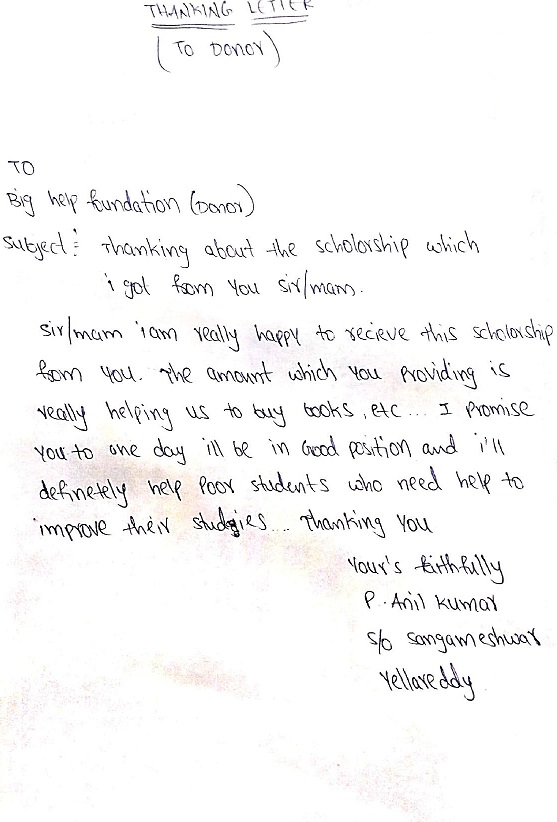 THANKING LETTER
(TO DONOR)
TO
Big help foundation (Donor)
Subject: Thanking about the scholorship which
i got from you sir/mam.
sir/mam iam really happy to recieve this scholorship
from you. The amount which you providing is
really helping us to buy books, etc... I promise
you to one day ill be in Good position and i'll
definetely help poor students who need help to
improve their studies... Thanking you
Your's faithfully
P. Anil kumar
s/o sangameshwar
Yellareddy